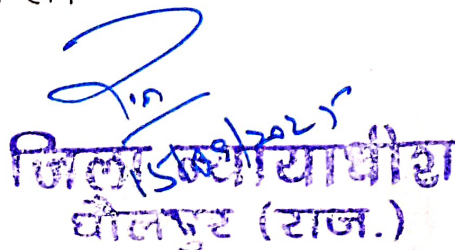 15/09/2025
जिला न्यायाधीश
धौलपुर (राज.)